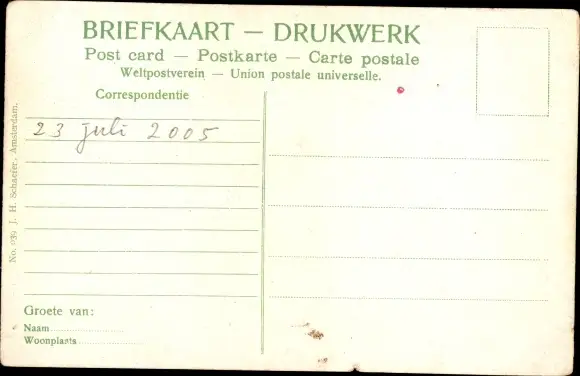 BRIEFKAART — DRUKWERK
Post card — Postkarte — Carte postale
Weltpostverein — Union postale universelle.
Correspondentie
23 juli 2005
Groete van:
Naam
Woonplaats
J. H. Schaefer, Amsterdam.